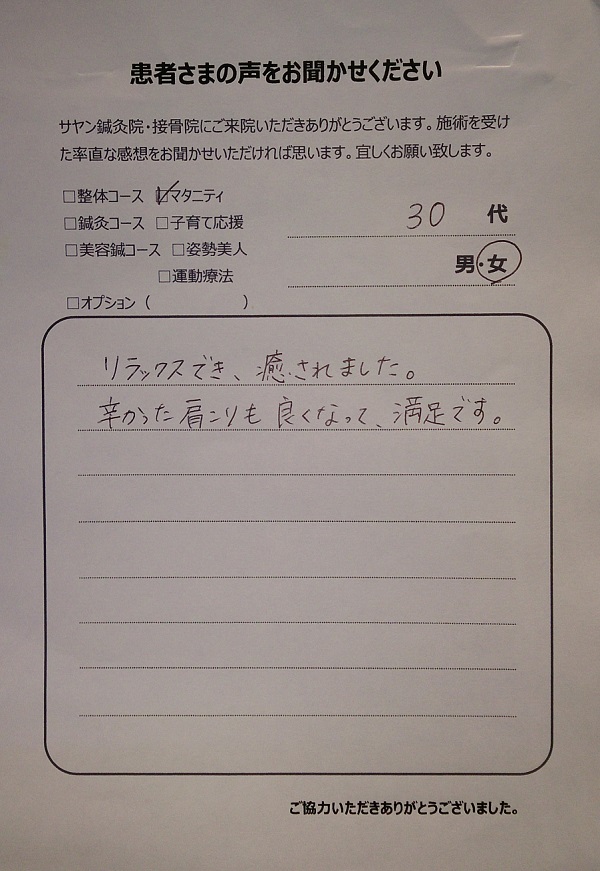 患者さまの声をお聞かせください
サヤン鍼灸院・接骨院にご来院いただきありがとうございます。施術を受け
た率直な感想をお聞かせいただければ思います。宜しくお願い致します。
□整体コース ☑マタニティ
□鍼灸コース □子育て応援
□美容鍼コース □姿勢美人
□運動療法
□オプション（ ）
30 代
男・女
リラックスでき、癒されました。
辛かった肩こりも良くなって、満足です。
ご協力いただきありがとうございました。